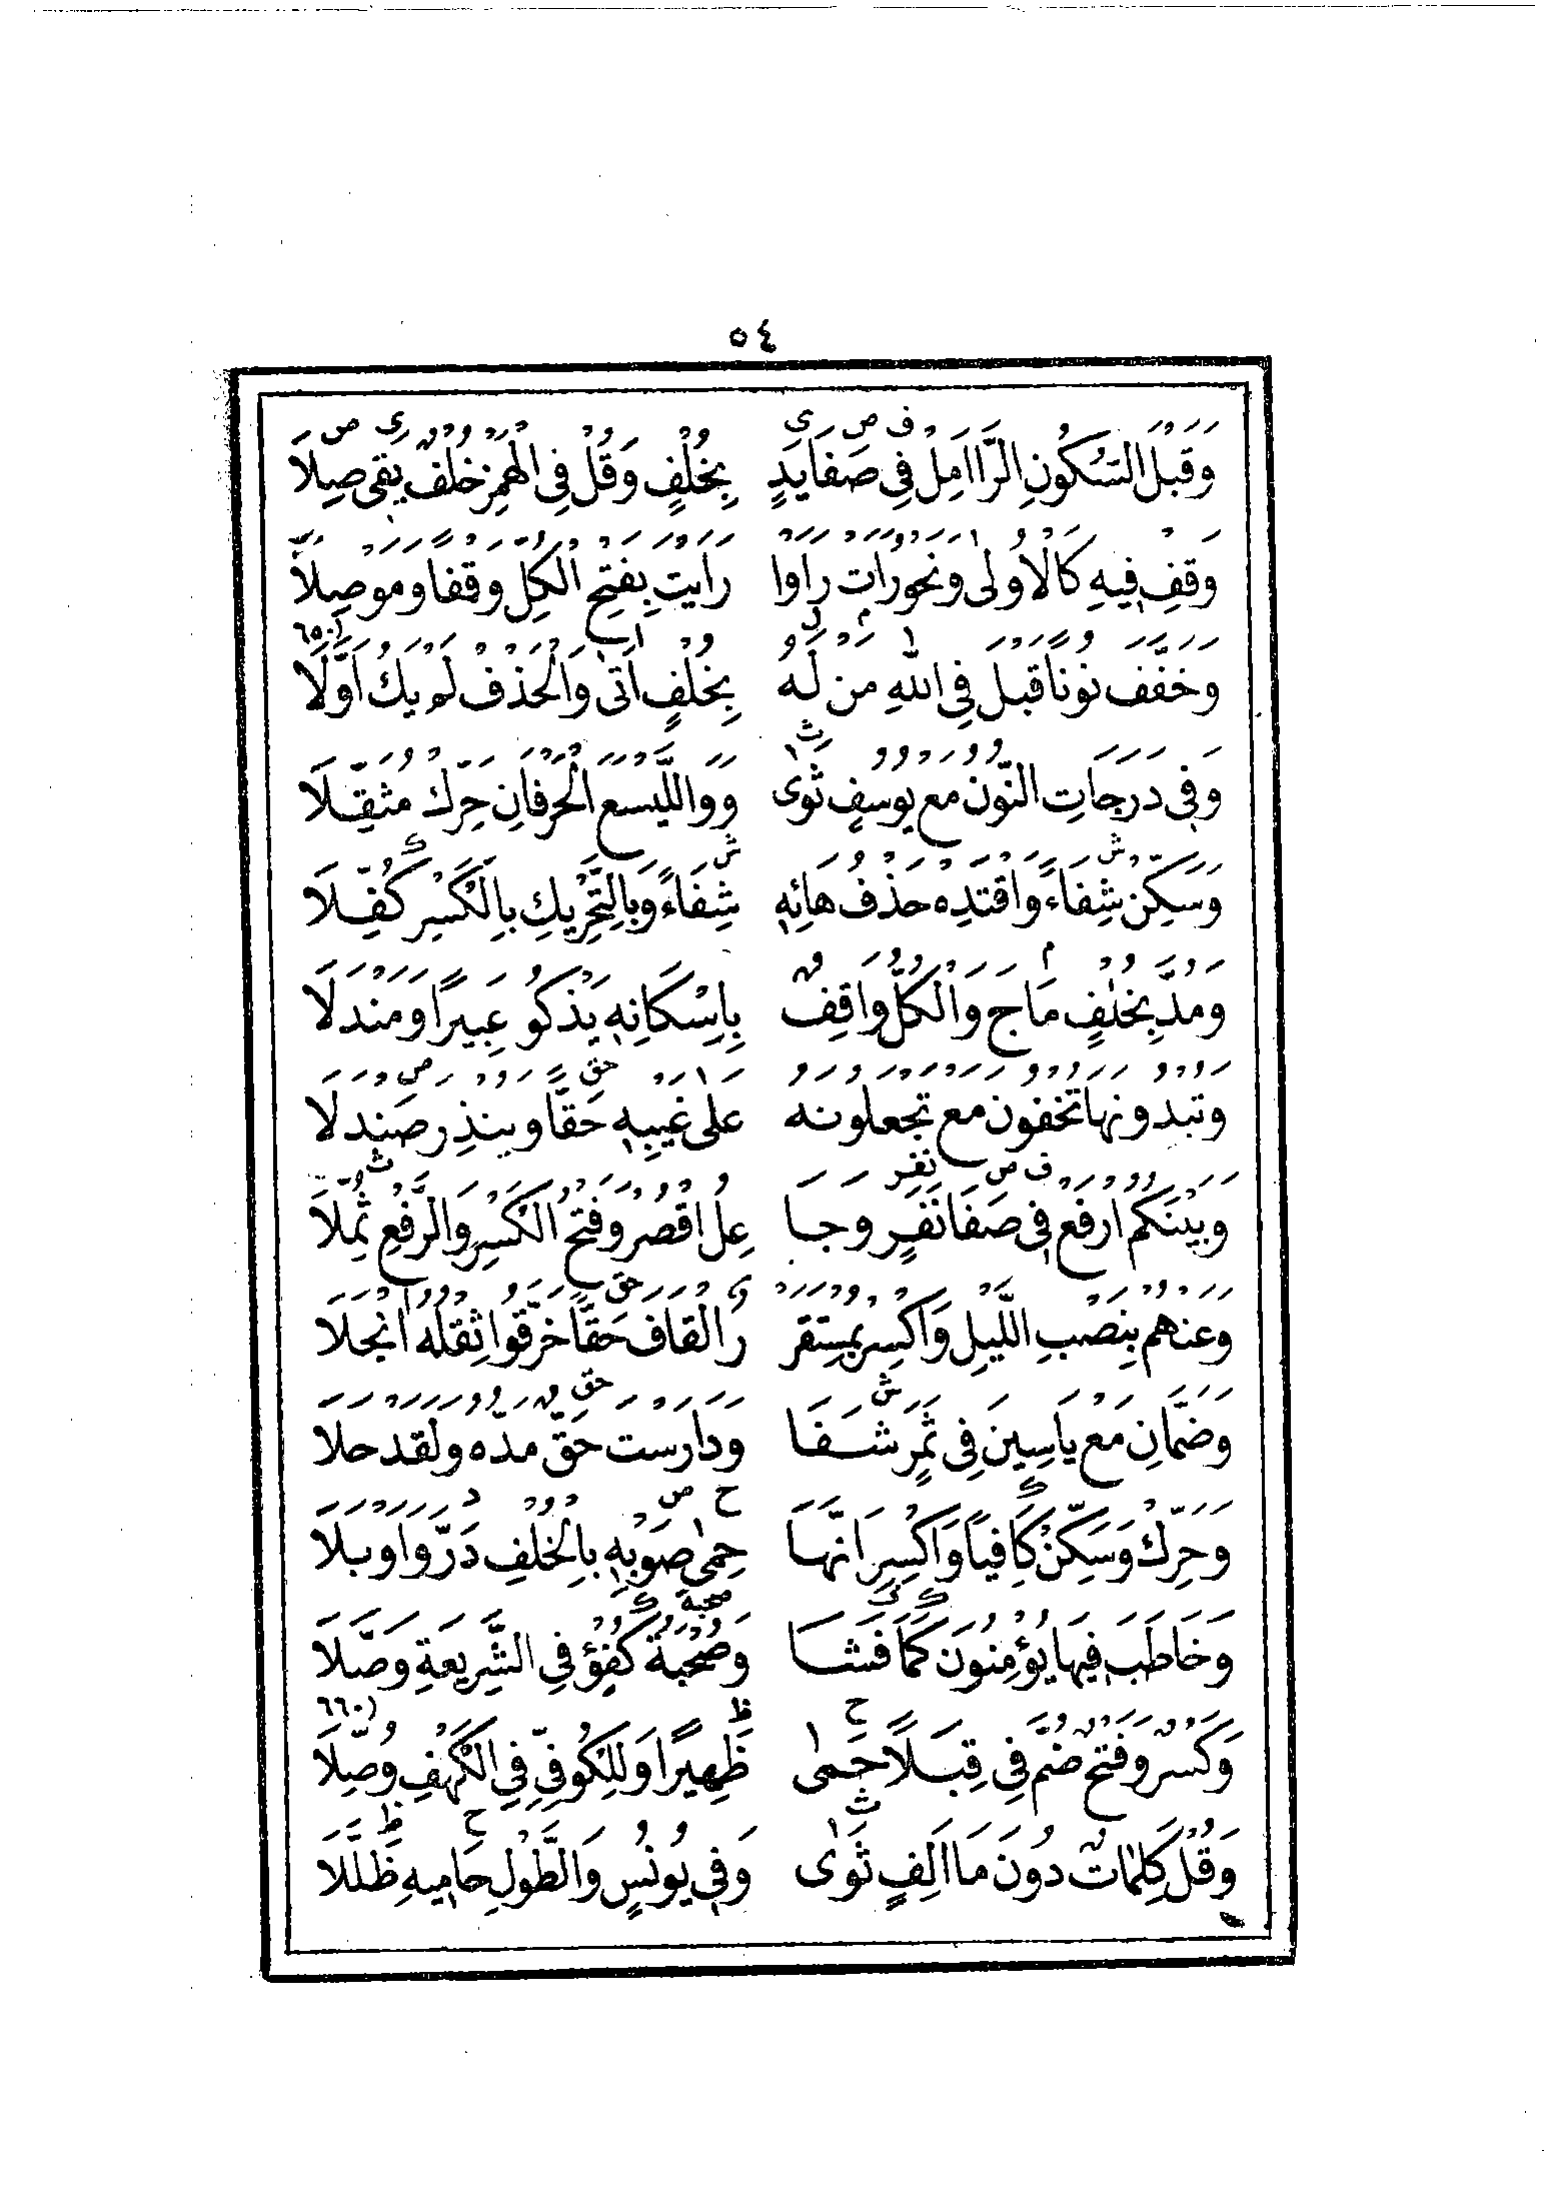 ٥٤
وَقَبْلَ السُّكُونِ الرَّا امِلْ فِى صَفَا يَدٍ بِخُلْفٍ وَقُلْ فِى الْهَمْزِ خُلْفٌ يَقِى صِلَا
وَقِفْ فِيهِ كَالْاُولٰى وَنَحْوُ رَاَتْ رَاَوْا رَاَيْتَ بِفَتْحِ الْكُلِّ وَقْفًا وَمَوْصِلَا
وَخَفَّفَ نُونًا قَبْلَ فِى اللهِ مَنْ لَهُ بِخُلْفٍ اَتٰى وَالْحَذْفُ لَمْ يَكُ اَوَّلَا
٦٥٠
وَفِى دَرَجَاتِ النُّونُ مَعْ يُوسُفٍ ثَوٰى وَوَاللَّيْسَعَ الْحَرْفَانِ حَرِّكْ مُثَقِّلَا
وَسَكِّنْ شِفَاءً وَاقْتَدِهْ حَذْفُ هَائِهِ شِفَاءً وَبِالتَّحْرِيكِ بِالْكَسْرِ كُفِّلَا
وَمُدَّ بِخُلْفٍ مَاجَ وَالْكُلُّ وَاقِفٌ بِاِسْكَانِهِ يَذْكُو عَبِيرًا وَمَنْدَلَا
وَتُبْدُونَهَا تُخْفُونَ مَعْ تَجْعَلُونَهُ عَلٰى غَيْبِهِ حَقًّا وَيُنْذِرَ صَنْدَلَا
وَبَيْنَكُمُ ارْفَعْ فِى صَفَا نَفَرٍ وَجَا عِلُ اقْصُرْ وَفَتْحُ الْكَسْرِ وَالرَّفْعِ ثُمِّلَا
وَعَنْهُمْ بِنَصْبِ اللَّيْلِ وَاكْسِرْ بِمُسْتَقَرْ رٌ الْقَافَ حَقًّا خَرَّقُوا ثِقْلُهُ انْجَلَا
وَضَمَّانِ مَعْ يَاسِينَ فِى ثَمَرٍ شَفَا وَدَارَسْتَ حَقٌّ مَدُّهُ وَلَقَدْ حَلَا
وَحَرِّكْ وَسَكِّنْ كَافِيًا وَاكْسِرِ انَّهَا حِمٰى صَوْبِهِ بِالْخُلْفِ دَرَّ وَاَوْبَلَا
وَخَاطَبَ فِيهَا يُؤْمِنُونَ كَمَا فَشَا وَصُحْبَةُ كُفْؤٍ فِى الشَّرِيعَةِ وَصَّلَا
وَكَسْرٌ وَفَتْحٌ ضُمَّ فِى قِبَلًا حَمٰى ظَهِيرًا وَلِلْكُوفِىِّ فِى الْكَهْفِ وُصِّلَا
٦٦٠
وَقُلْ كَلِمَاتٌ دُونَ مَا اَلِفٍ ثَوٰى وَفِى يُونُسٍ وَالطَّوْلِ حَامِيهِ ظَلَّلَا